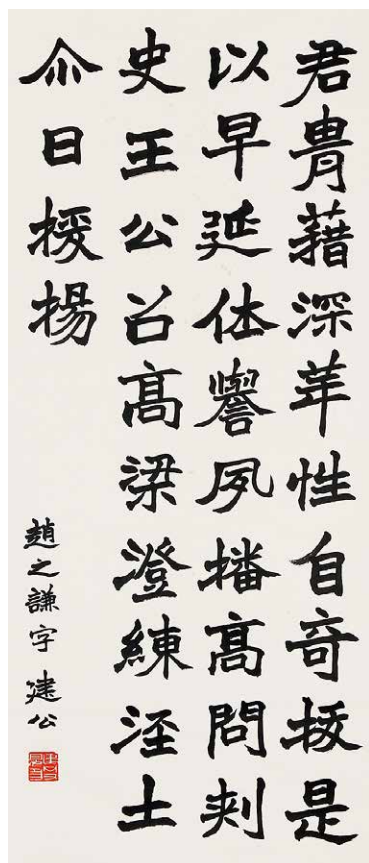 君胄藉深華性自奇拔是
以早延休譽夙播高問刾
史王公召高梁澄練涇土
尒日援揚
趙之謙字 建公